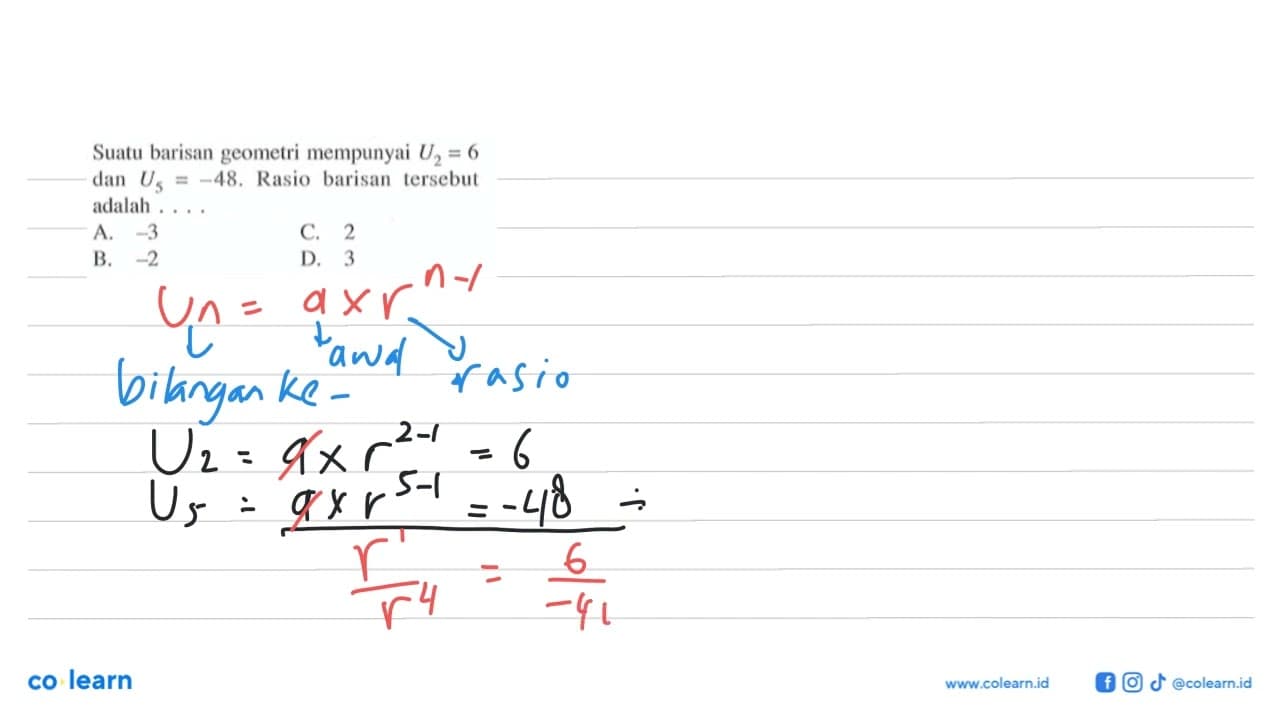 Suatu barisan geometri mempunyai U₂ = 6
dan U₅ = −48. Rasio barisan tersebut
adalah . . . .
A. −3 C. 2
B. −2 D. 3
Un = a x r^(n-1)
awal rasio
bilangan ke -
U₂ = a x r^(2-1) = 6
U₅ = a x r^(5-1) = -48 ÷
r¹/r⁴ = 6/-4
co learn
www.colearn.id @colearn.id